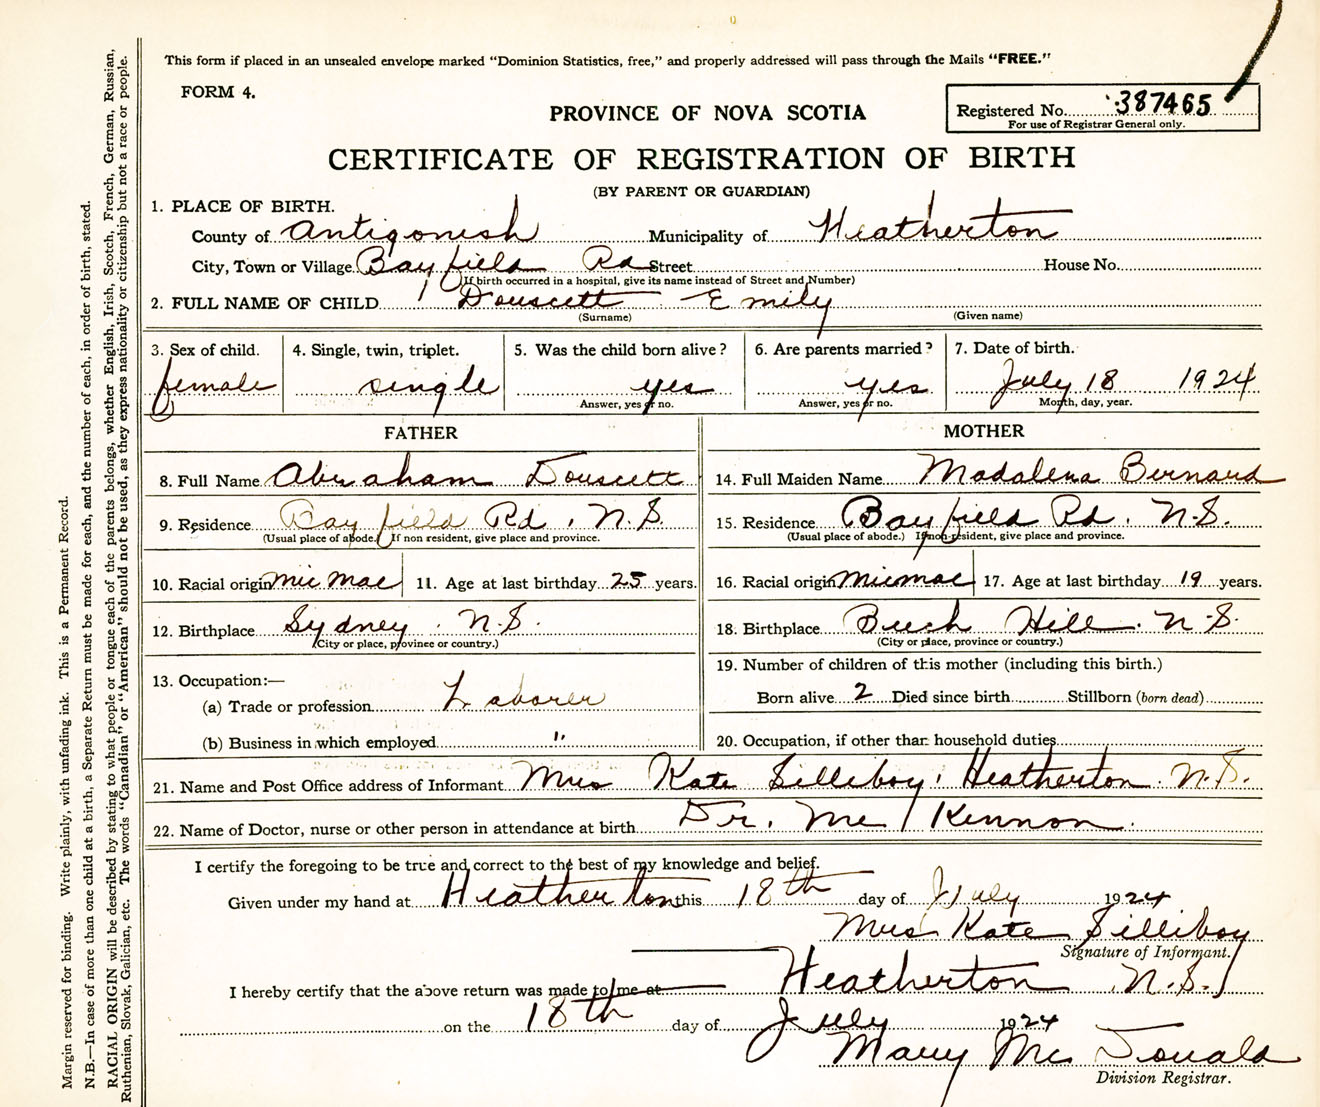 This form if placed in an unsealed envelope marked "Dominion Statistics, free," and properly addressed will pass through the Mails "FREE."
FORM 4.
PROVINCE OF NOVA SCOTIA
Registered No. 387465
For use of Registrar General only.
CERTIFICATE OF REGISTRATION OF BIRTH
(BY PARENT OR GUARDIAN)
1. PLACE OF BIRTH.
County of Antigonish Municipality of Heatherton
City, Town or Village Bayfield Rd Street House No.
(If birth occurred in a hospital, give its name instead of Street and Number)
2. FULL NAME OF CHILD Douscett Emily
(Surname) (Given name)
3. Sex of child. 4. Single, twin, triplet. 5. Was the child born alive? 6. Are parents married? 7. Date of birth.
female single yes yes July 18 1924
Answer, yes or no. Answer, yes or no. Month, day, year.
FATHER
8. Full Name Abraham Douscett
9. Residence Bayfield Rd. N.S.
(Usual place of abode.) If non resident, give place and province.
10. Racial origin Mic Mac 11. Age at last birthday 25 years.
12. Birthplace Sydney. N.S.
(City or place, province or country.)
13. Occupation:—
(a) Trade or profession Laborer
(b) Business in which employed "
MOTHER
14. Full Maiden Name Madalena Bernard
15. Residence Bayfield Rd. N.S.
(Usual place of abode.) If non-resident, give place and province.
16. Racial origin Micmac 17. Age at last birthday 19 years.
18. Birthplace Buch Hill. N.S.
(City or place, province or country.)
19. Number of children of this mother (including this birth.)
Born alive 2 Died since birth Stillborn (born dead)
20. Occupation, if other than household duties
21. Name and Post Office address of Informant Mrs Kate Silliboy, Heatherton N.S.
22. Name of Doctor, nurse or other person in attendance at birth Dr. Mc Kinnon.
I certify the foregoing to be true and correct to the best of my knowledge and belief.
Given under my hand at Heatherton this 18th day of July 1924
Mrs Kate Silliboy
Signature of Informant.
I hereby certify that the above return was made to me at Heatherton N.S.
on the 18th day of July 1924
Mary Mc Donald
Division Registrar.
Margin reserved for binding. Write plainly, with unfading ink. This is a Permanent Record.
N.B.—In case of more than one child at a birth, a Separate Return must be made for each, and the number of each, in order of birth, stated.
RACIAL ORIGIN will be described by stating to what people or tongue each of the parents belongs, whether English, Irish, Scotch, French, German, Russian,
Ruthenian, Slovak, Galician, etc. The words "Canadian" or "American" should not be used, as they express nationality or citizenship but not a race or people.